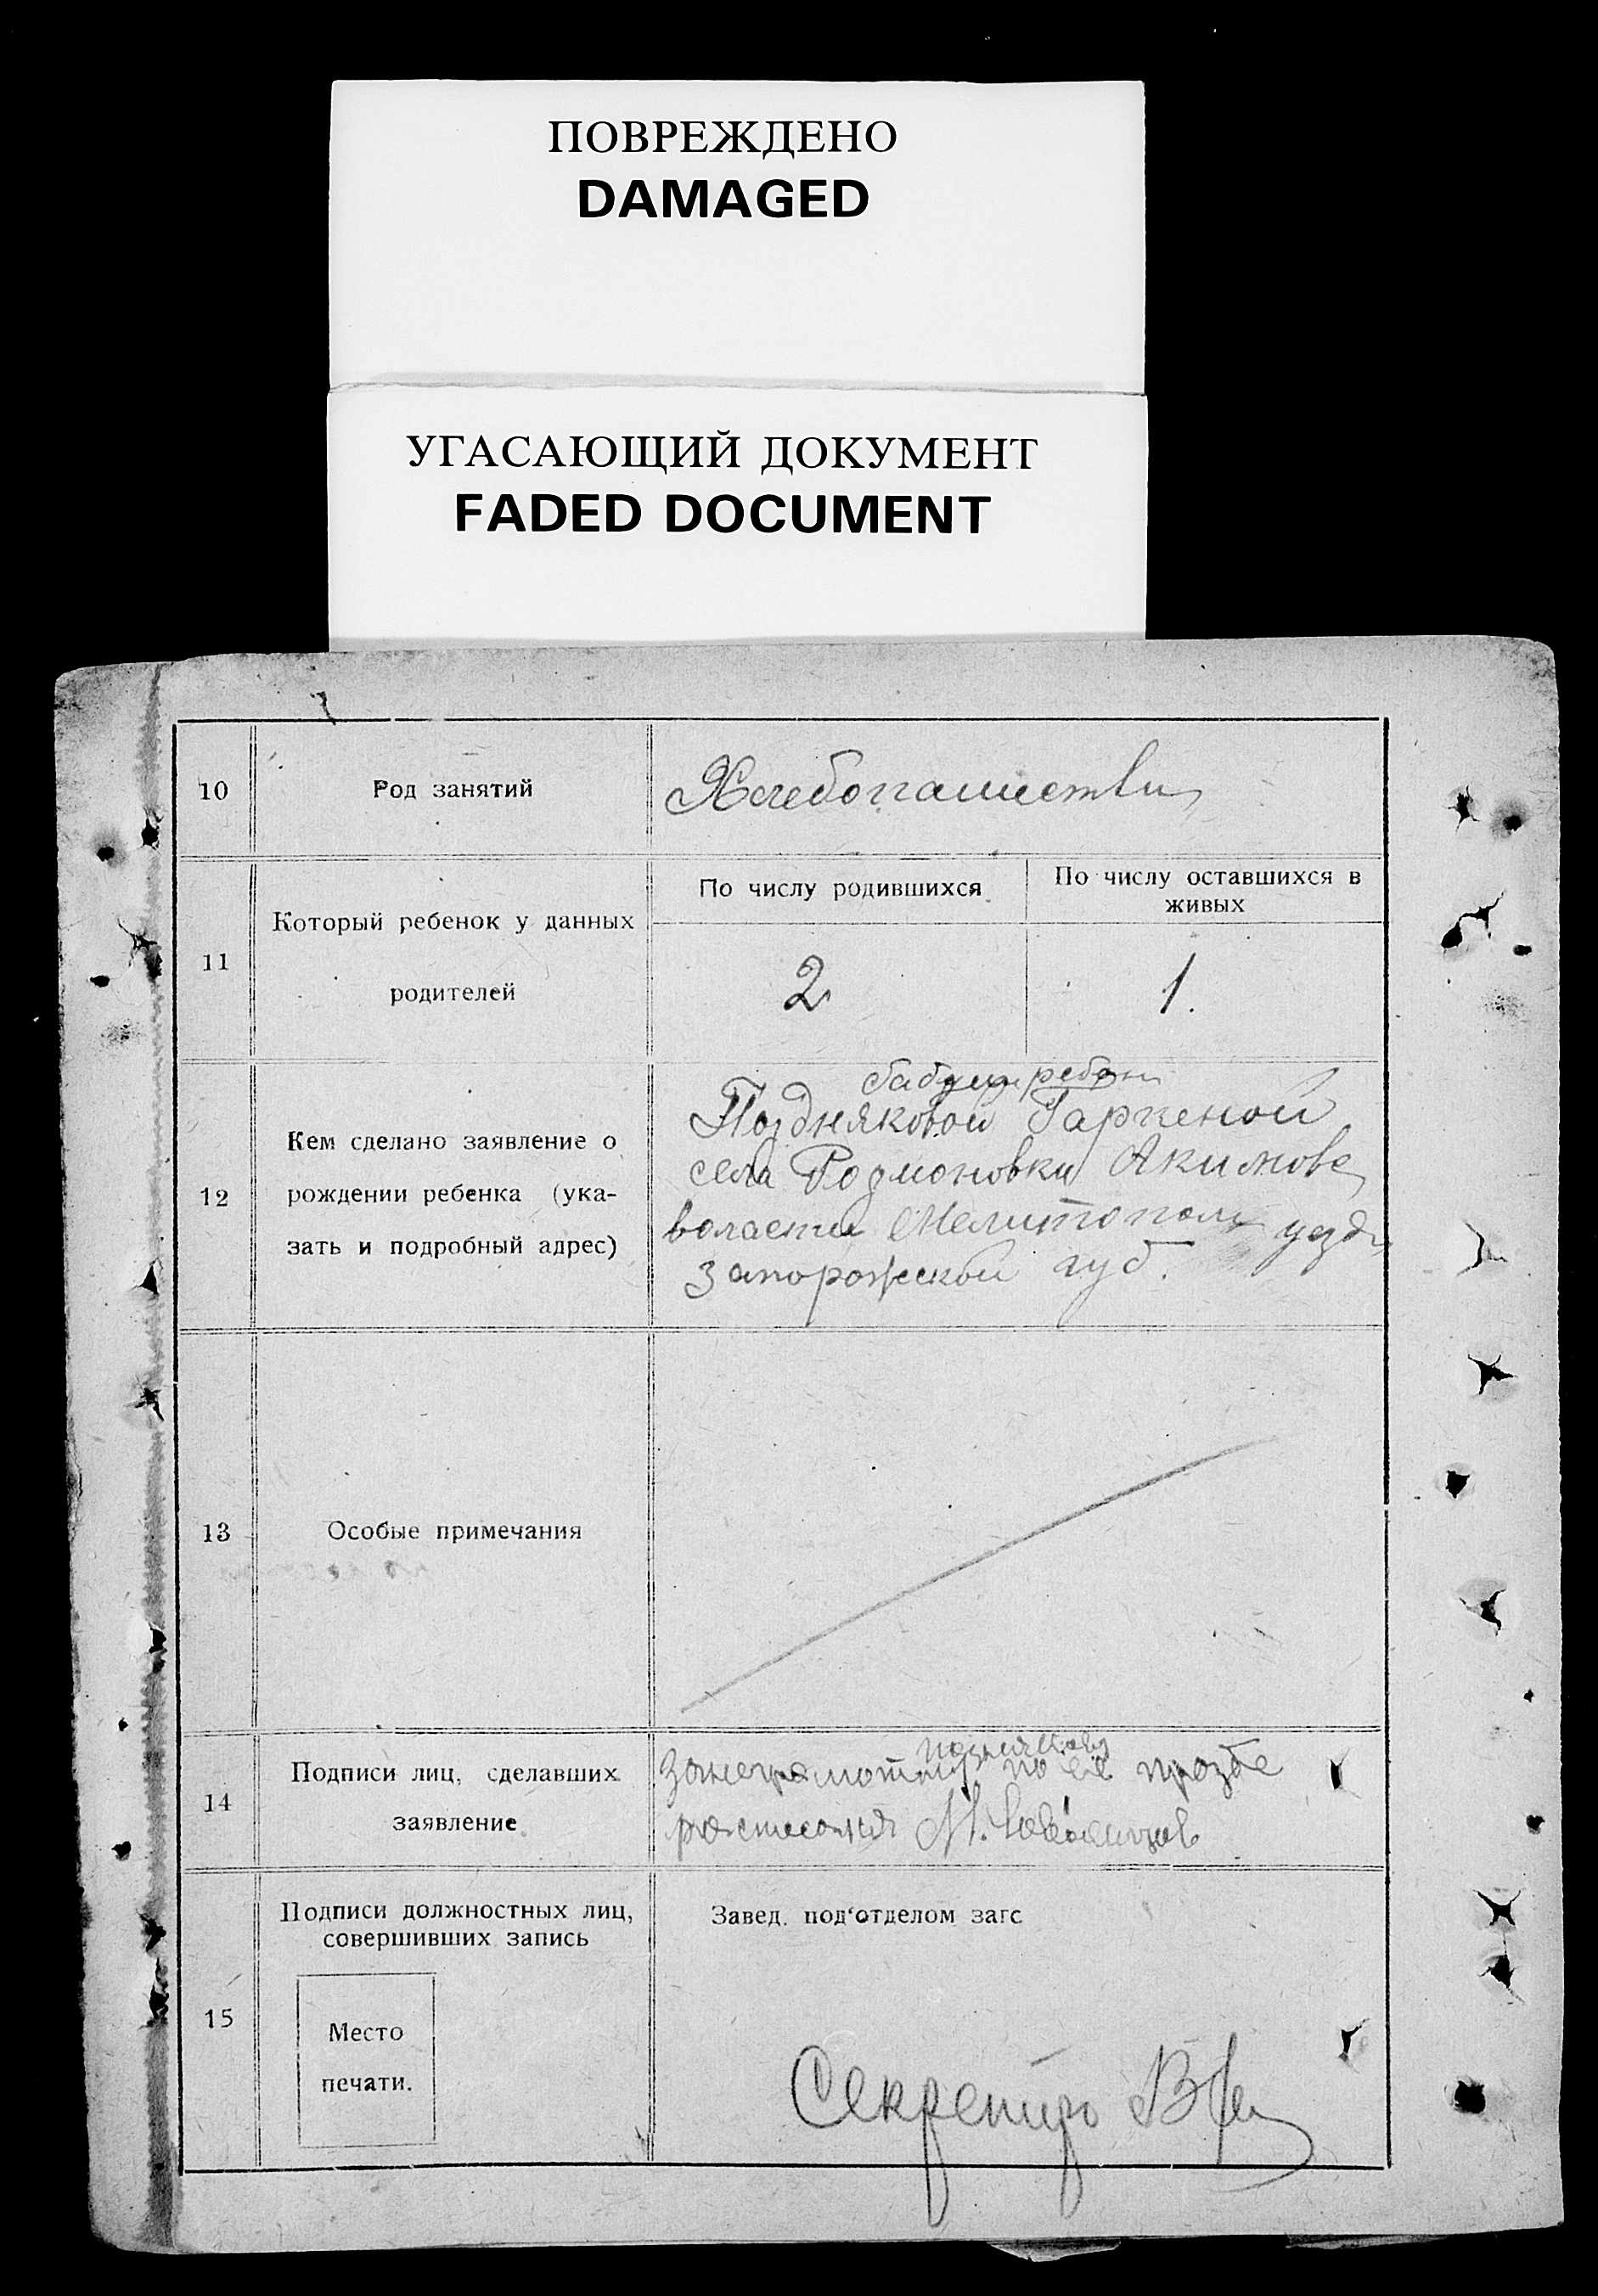 ПОВРЕЖДЕНО
DAMAGED
УГАСАЮЩИЙ ДОКУМЕНТ
FADED DOCUMENT
10
Род занятий
Хлебопашестви
11
Который ребенок у данных
родителей
По числу родившихся
По числу оставшихся в
живых
2
1.
12
Кем сделано заявление о
рождении ребенка (ука-
зать и подробный адрес)
Поздняковой Гарпеной
села Родионовки Акимове
воласти Мелитополь уезд
запорожской губ.
13
Особые примечания
14
Подписи лиц, сделавших
заявление
по её прозбе
М.
15
Подписи должностных лиц,
совершивших запись
Место
печати.
Завед. под'отделом загс
Секретарь